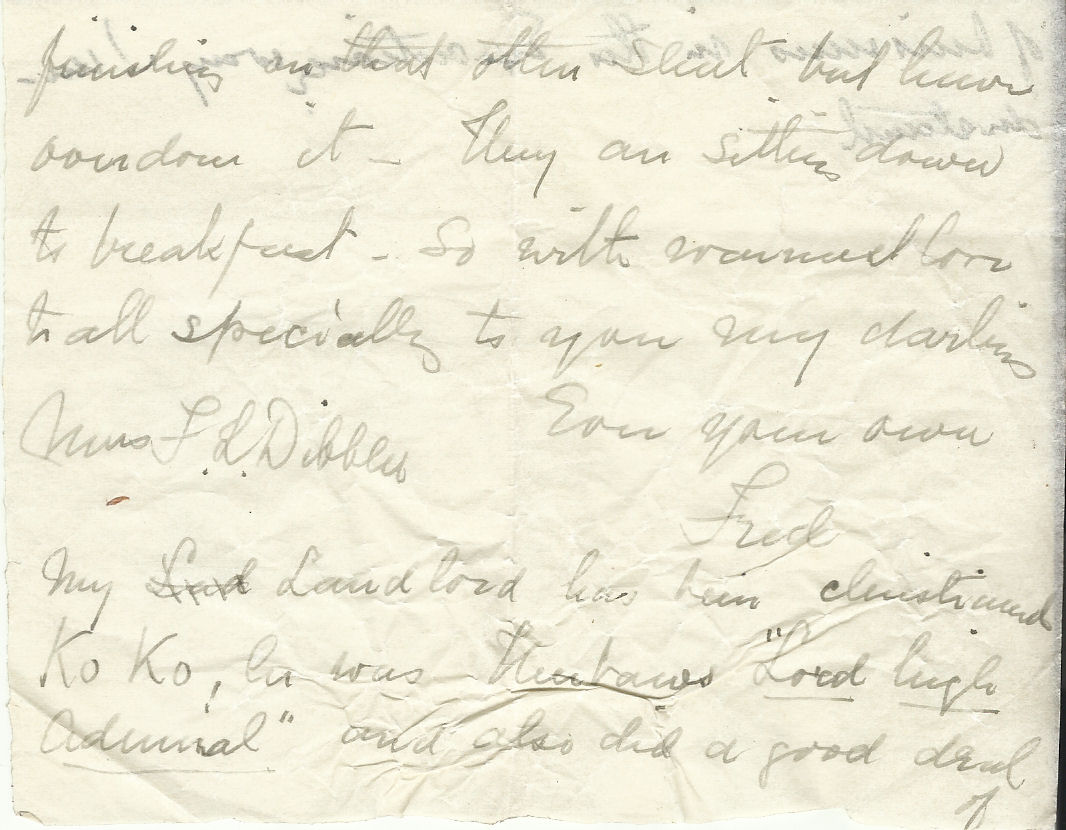 finishing on that other sheet but have
overdone it - They are sitting down
to breakfast - So with warmest love
to all specially to you my darling
Ever your own
Mrs F. L. Dibblee
Fred
My Landlord has been christened
Ko Ko, he was "Lord high
Admiral" and also did a good deal
of